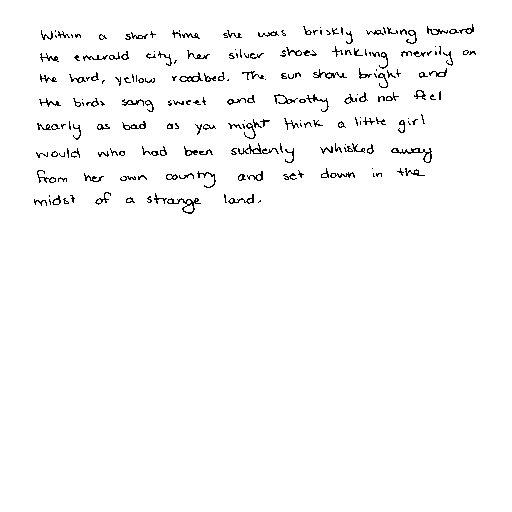 Within a short time she was briskly walking toward
the emerald city, her silver shoes tinkling merrily on
the hard, yellow roadbed. The sun shone bright and
the birds sang sweet and Dorothy did not feel
nearly as bad as you might think a little girl
would who had been suddenly whisked away
from her own country and set down in the
midst of a strange land.